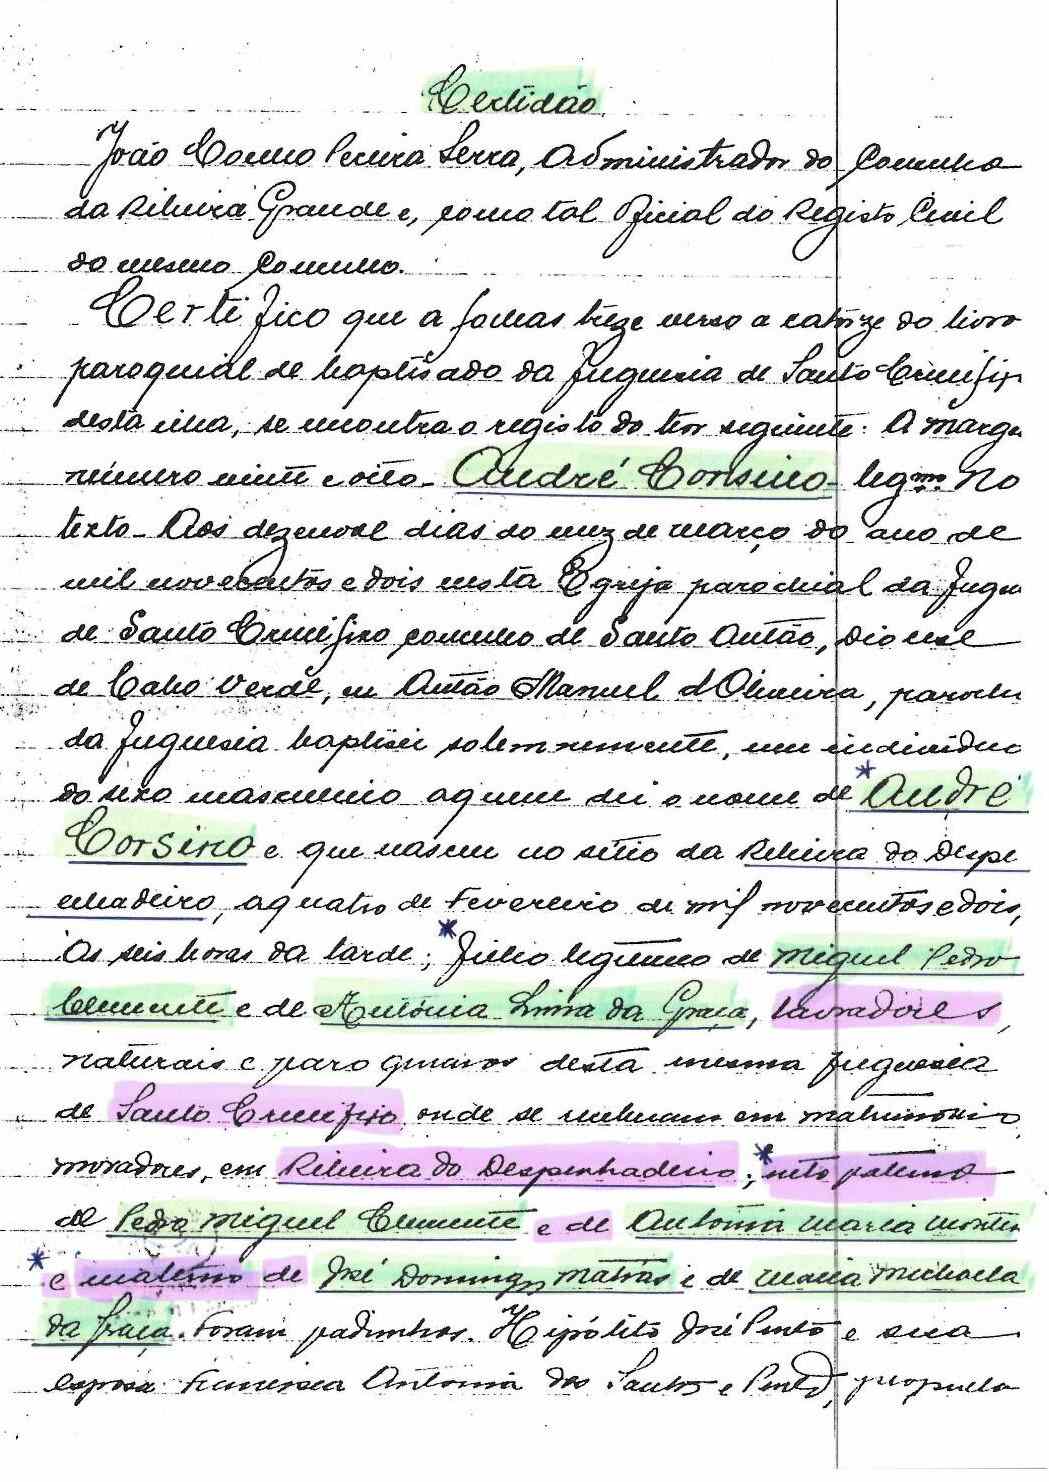 Certidão
João Cosmo Pereira Serra, Administrador do Concelho
da Ribeira Grande e, como tal Oficial do Registo Civil
do mesmo Concelho.
Certifico que a folhas treze verso a catorze do livro
paroquial de baptisado da freguesia de Santo Crucifix
desta ilha, se encontra o registo do teor seguinte: A marge
número vinte e oito - André Corsino - legmo. No
texto - Aos dezenove dias do mez de março do ano de
mil novecentos e dois nesta Egreja parochial da fregue
de Santo Crucifixo concelho de Santo Antão, Diocese
de Cabo Verde, eu Antão Manuel d'Oliveira, parocho
da freguesia baptisei solemnemente, um individuo
do sexo masculino a quem dei o nome de André
Corsino e que nasceu no sitio da Ribeira do Despe
nhadeiro, a quatro de Fevereiro de mil novecentos e dois,
As seis horas da tarde; filho legitimo de Miguel Pedro
Clemente e de Antónia Lima da Graça, lavradores,
naturais e paroquianos desta mesma freguesia
de Santo Crucifixo onde se receberam em matrimonio
moradores, em Ribeira do Despenhadeiro; neto paterno
de Pedro Miguel Clemente e de Antonia Maria Monteir
e materno de José Domingos Matias e de Maria Michaela
da Graça. Foram padrinhos. Hipólito José Pinto e sua
esposa Francisca Antonia dos Santos e Pinto,